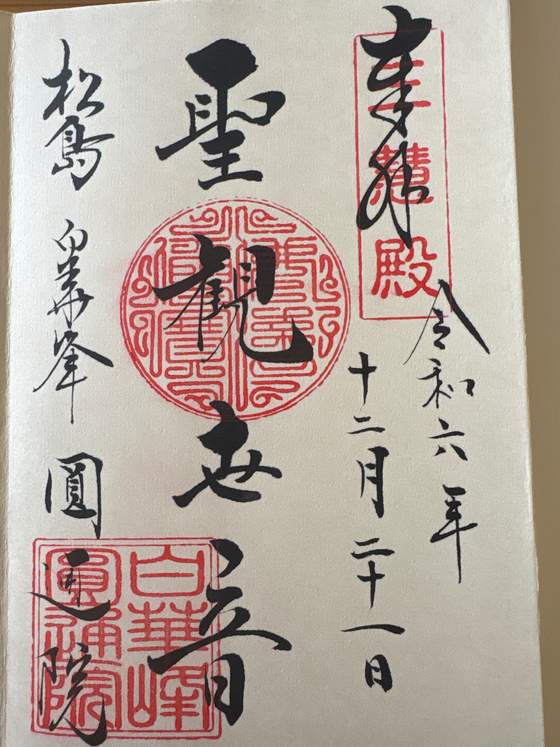 奉拝
三慧殿
令和六年
十二月二十一日
聖観世音
松島 白華峰 圓通院
白華峰
圓通院